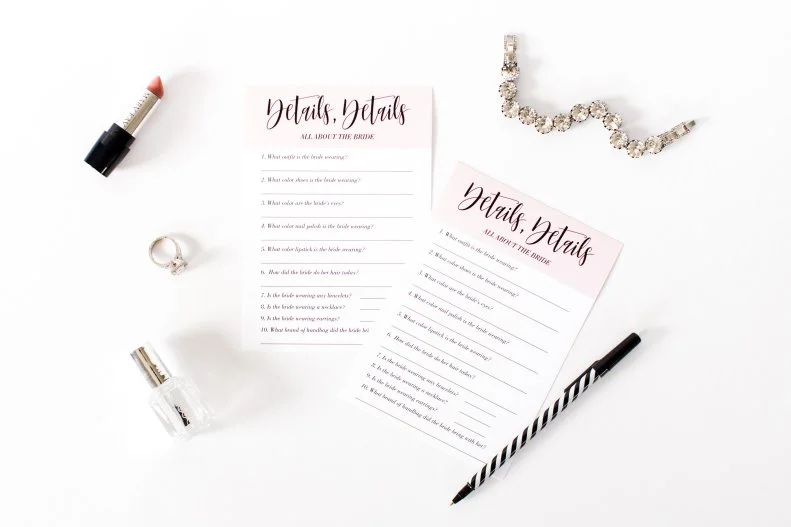 Details, Details
ALL ABOUT THE BRIDE
1. What outfit is the bride wearing?
2. What color shoes is the bride wearing?
3. What color are the bride's eyes?
4. What color nail polish is the bride wearing?
5. What color lipstick is the bride wearing?
6. How did the bride do her hair today?
7. Is the bride wearing any bracelets?
8. Is the bride wearing a necklace?
9. Is the bride wearing earrings?
10. What brand of handbag did the bride
Details, Details
ALL ABOUT THE BRIDE
1. What outfit is the bride wearing?
2. What color shoes is the bride wearing?
3. What color are the bride's eyes?
4. What color nail polish is the bride wearing?
5. What color lipstick is the bride wearing?
6. How did the bride do her hair today?
7. Is the bride wearing any bracelets?
8. Is the bride wearing a necklace?
9. Is the bride wearing earrings?
10. What brand of handbag did the bride bring with her?